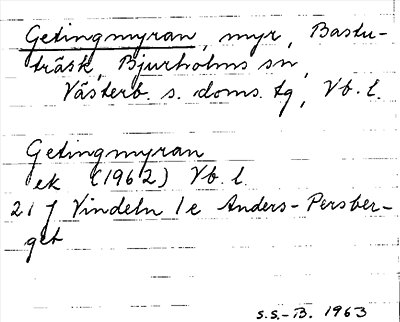 Getingmyran, myr, Bastu-
träsk, Bjurholms sn,
Västerb. s. doms. tg, Vb. l.
Getingmyran
ek (1962) Vb. l.
21 J Vindeln 1e Anders-Persber-
get
S.S.-B. 1963